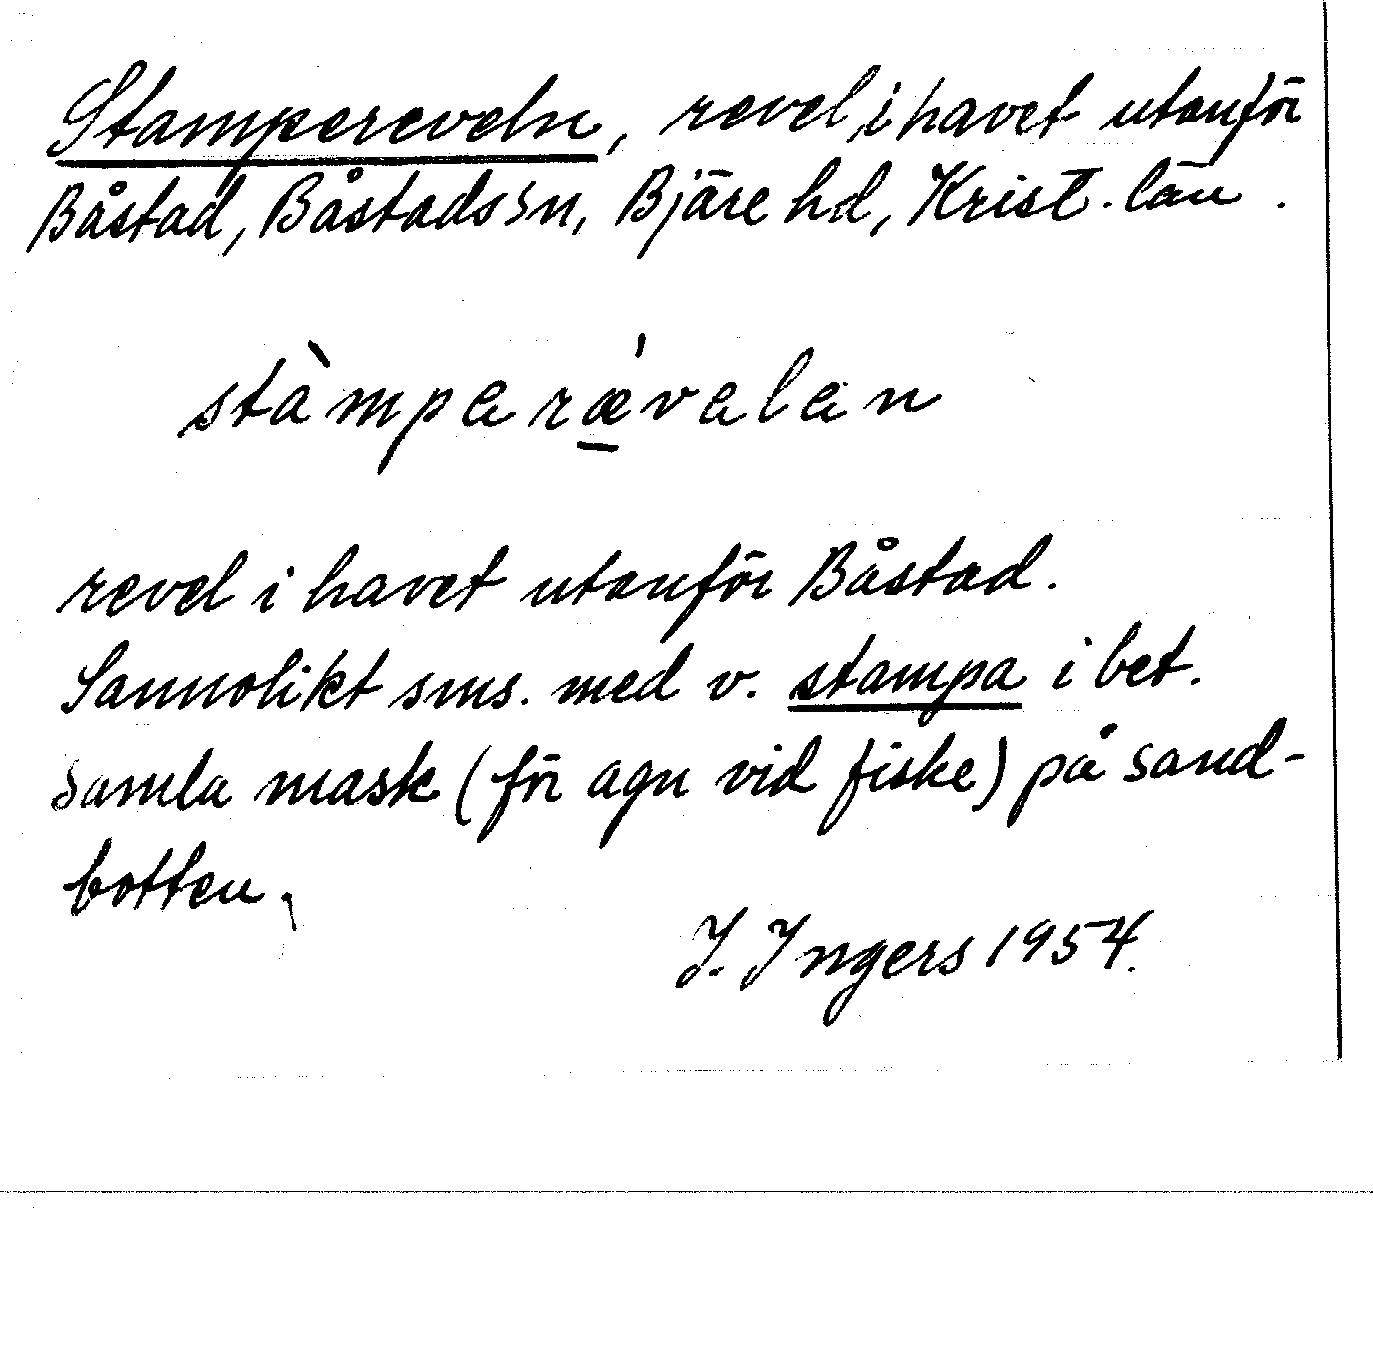 Stampereveln, revel i havet utanför
Båstad, Båstads sn, Bjäre hd, Krist. län.
stàmpərǽvələn
revel i havet utanför Båstad.
Sannolikt sms. med v. stampa i bet.
samla mask (för agn vid fiske) på sand-
botten.
I. Ingers 1954.